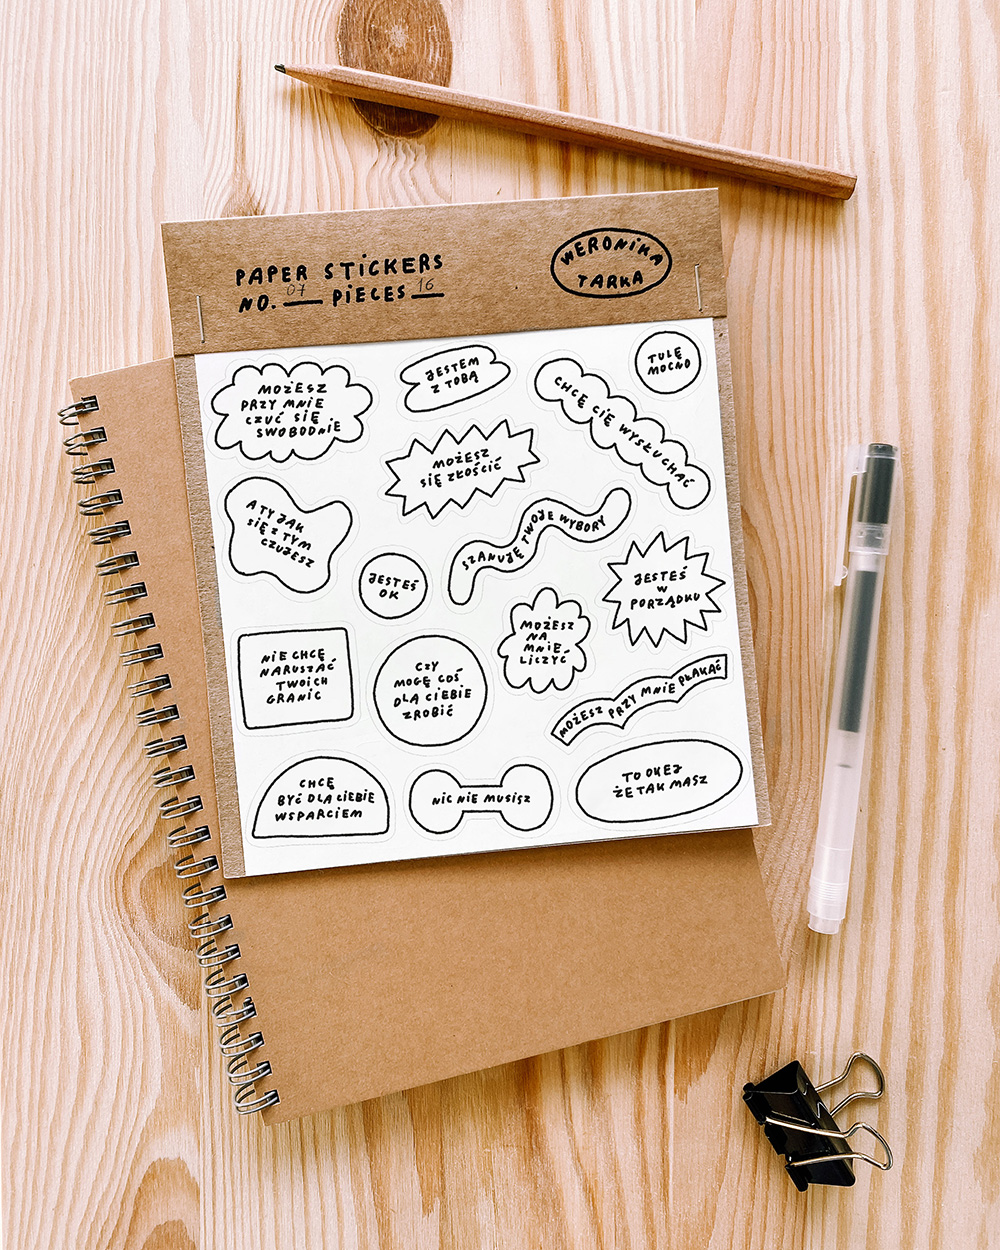 PAPER STICKERS
NO. 07 PIECES 16
WERONIKA
TARKA
MOŻESZ
PRZY MNIE
CZUĆ SIĘ
SWOBODNIE
JESTEM
Z TOBĄ
CHCĘ CIĘ WYSŁUCHAĆ
TULĘ
MOCNO
MOŻESZ
SIĘ ZŁOŚCIĆ
A TY JAK
SIĘ Z TYM
CZUJESZ
JESTEŚ
OK
SZANUJĘ TWOJE WYBORY
JESTEŚ
W
PORZĄDKU
MOŻESZ
NA
MNIE
LICZYĆ
NIE CHCĘ
NARUSZAĆ
TWOICH
GRANIC
CZY
MOGĘ COŚ
DLA CIEBIE
ZROBIĆ
MOŻESZ PRZY MNIE PŁAKAĆ
CHCĘ
BYĆ DLA CIEBIE
WSPARCIEM
NIC NIE MUSISZ
TO OKEJ
ŻE TAK MASZ